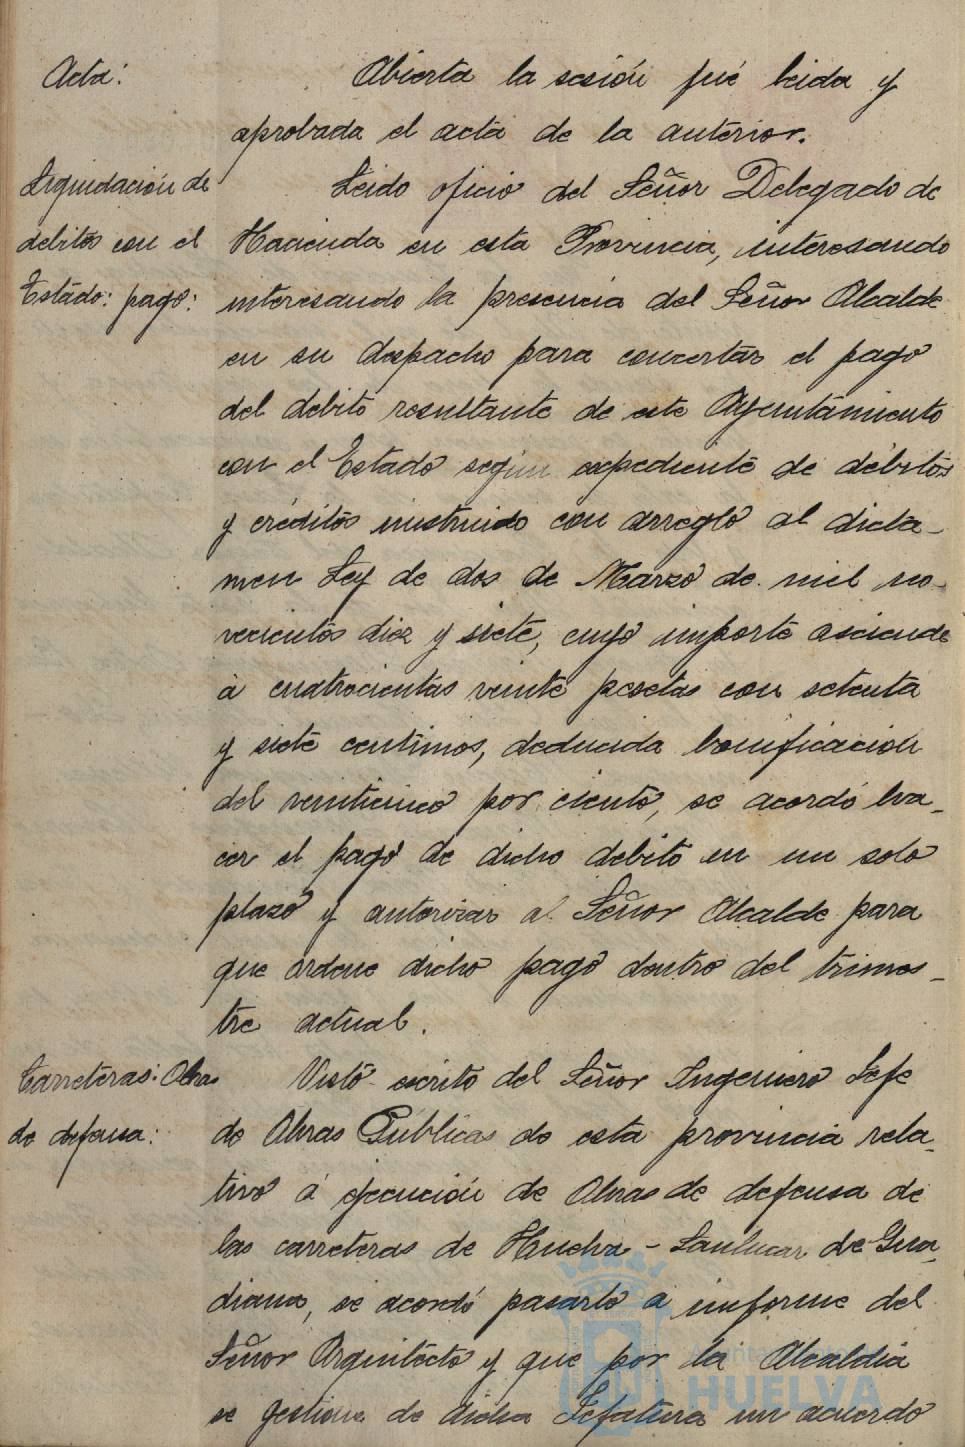 Acta:
Abierta la sesión fué leida y
aprobada el acta de la anterior.
Liquidación de
debitos con el
Estado: pago:
Leido oficio del Señor Delegado de
Hacienda en esta Provincia, interesando
interesando la presencia del Señor Alcalde
en su despacho para concertar el pago
del debito resultante de este Ayuntamiento
con el Estado según expediente de débitos
y créditos instruido con arreglo al dicta-
men Ley de dos de Marzo de mil no-
vecientos diez y siete, cuyo importe asciende
á cuatrocientas veinte pesetas con setenta
y siete centimos, deducida bonificación
del veinticinco por ciento, se acordó ha-
cer el pago de dicho debito en un solo
plazo y autorizar al Señor Alcalde para
que ordene dicho pago dentro del trimes-
tre actual.
Carreteras: Obras
de defensa:
Visto escrito del Señor Ingeniero Jefe
de Obras Públicas de esta provincia rela-
tivo á ejecución de Obras de defensa de
las carreteras de Huelva - Sanlucar de Gua-
diana, se acordó pasarlo a informe del
Señor Arquitecto y que por la Alcaldia
se gestione de dicha Jefatura un acuerdo
HUELVA